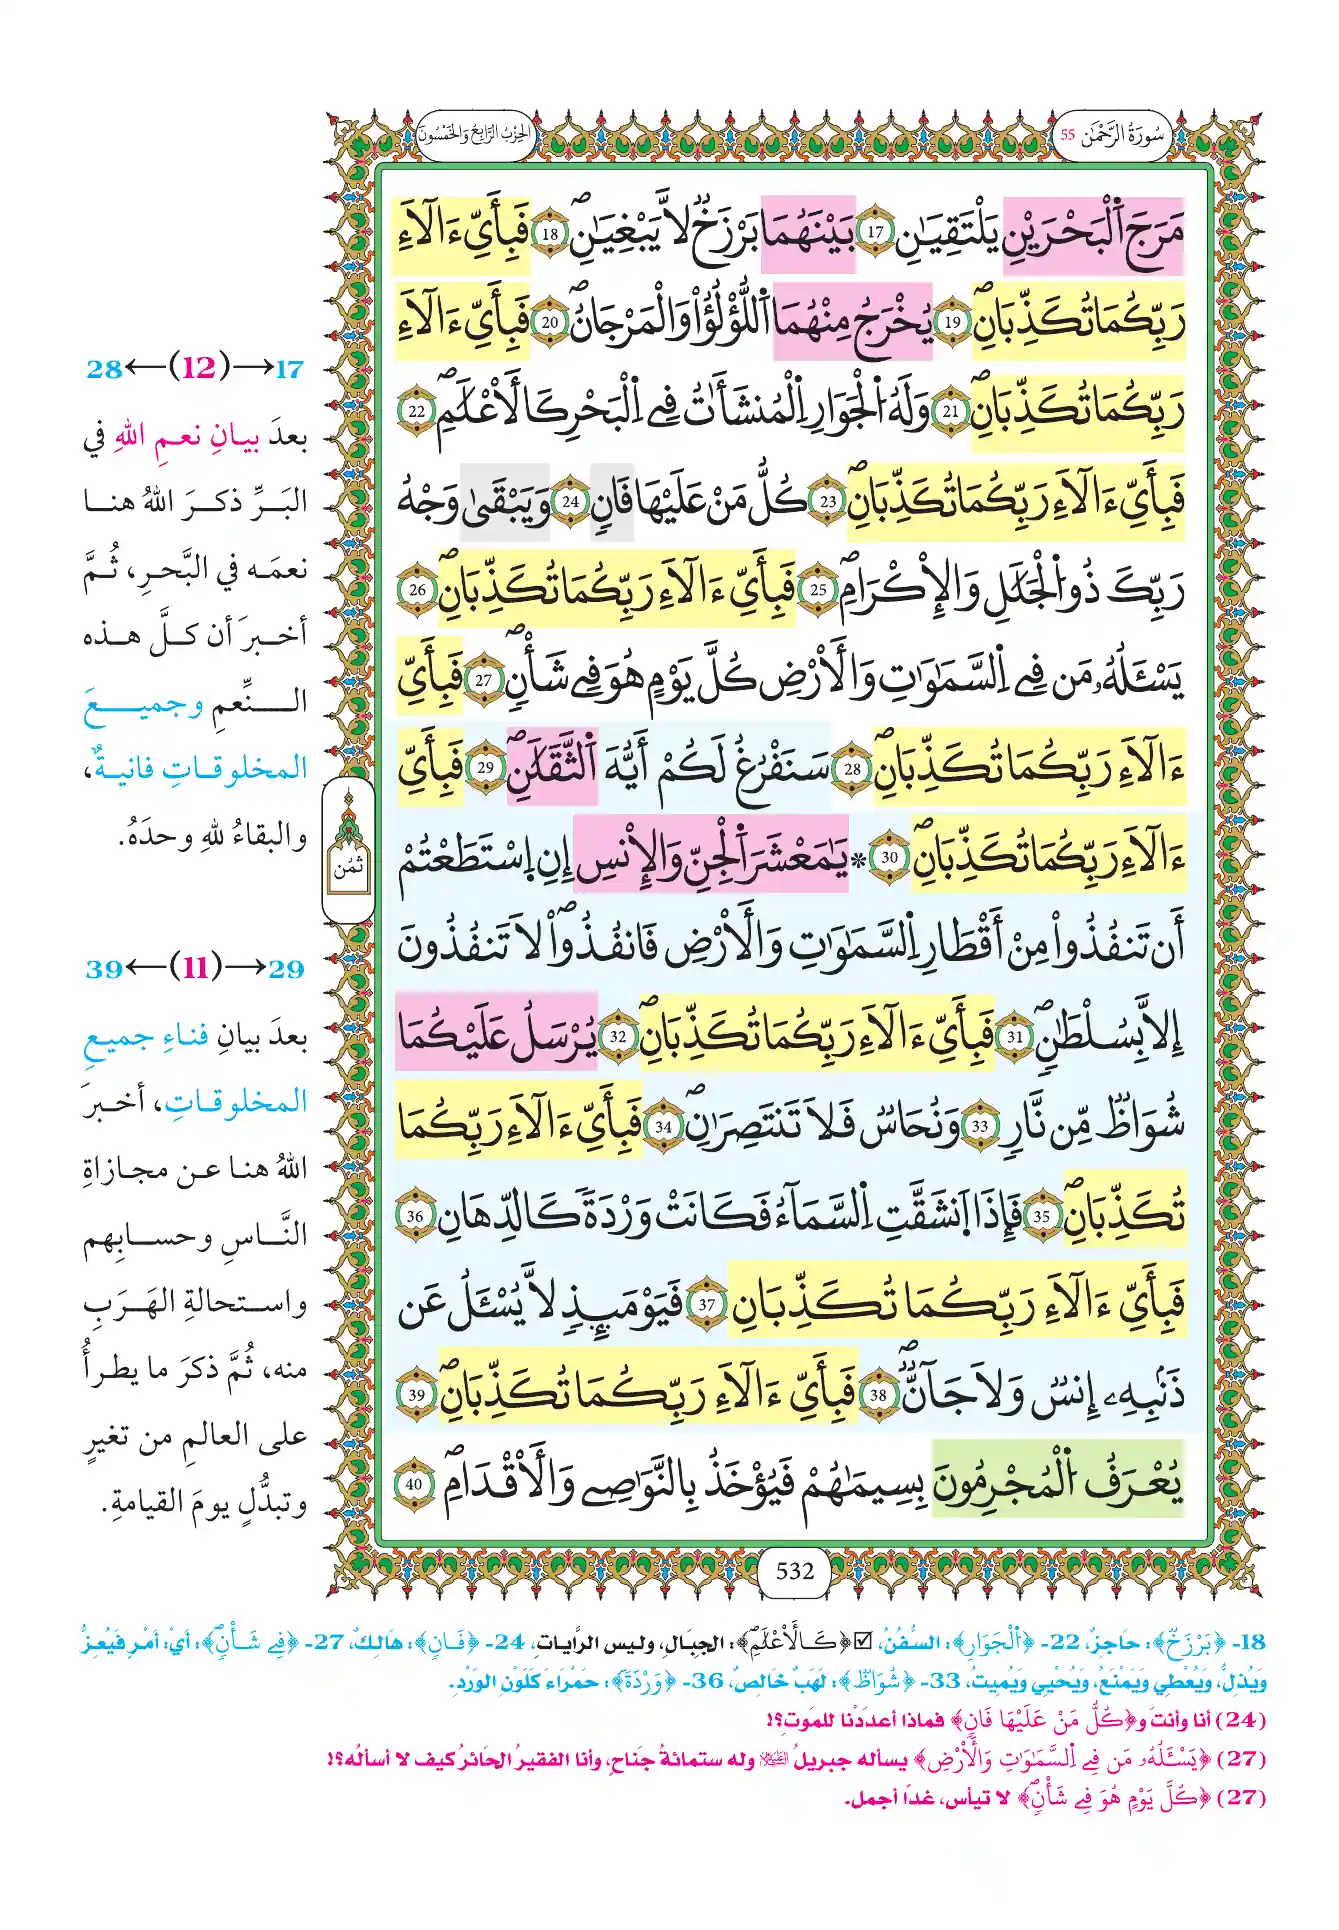 سُورَةُ الرَّحْمَٰن 55
الحِزْبُ الرَّابِعُ وَالخَمْسُونَ
مَرَجَ اَ۬لْبَحْرَيْنِ يَلْتَقِيَٰنِ 17 بَيْنَهُمَا بَرْزَخٌ لَّا يَبْغِيَٰنِۖ 18 فَبِأَيِّ ءَالَآءِ
رَبِّكُمَا تُكَذِّبَانِۖ 19 يُخْرَجُ مِنْهُمَا اَ۬للُّؤْلُؤُاْ وَالْمَرْجَانُۖ 20 فَبِأَيِّ ءَالَآءِ
رَبِّكُمَا تُكَذِّبَانِۖ 21 وَلَهُ اُ۬لْجَوَارِ اِ۬لْمُنشَـَٔاتُ فِے اِ۬لْبَحْرِ كَالَاعْلَٰمِۖ 22
فَبِأَيِّ ءَالَآءِ رَبِّكُمَا تُكَذِّبَانِۖ 23 كُلُّ مَنْ عَلَيْهَا فَانٖ 24 وَيَبْقَىٰ وَجْهُ
رَبِّكَ ذُو اُ۬لْجَلَٰلِ وَالِاكْرَامِۖ 25 فَبِأَيِّ ءَالَآءِ رَبِّكُمَا تُكَذِّبَانِۖ 26
يَسْـَٔلُهُۥ مَن فِے اِ۬لسَّمَٰوَٰتِ وَالَارْضِ كُلَّ يَوْمٍ هُوَ فِے شَأْنٖۖ 27 فَبِأَيِّ
ءَالَآءِ رَبِّكُمَا تُكَذِّبَانِۖ 28 سَنَفْرُغُ لَكُمْ أَيُّهَ اَ۬لثَّقَلَٰنِۖ 29 فَبِأَيِّ
ءَالَآءِ رَبِّكُمَا تُكَذِّبَانِۖ 30 * يَٰمَعْشَرَ اَ۬لْجِنِّ وَالِانسِ إِنِ اِ۪سْتَطَعْتُمْ
أَن تَنفُذُواْ مِنْ أَقْطَارِ اِ۬لسَّمَٰوَٰتِ وَالَارْضِ فَانفُذُواْۖ لَا تَنفُذُونَ
إِلَّا بِسُلْطَٰنٖۖ 31 فَبِأَيِّ ءَالَآءِ رَبِّكُمَا تُكَذِّبَانِۖ 32 يُرْسَلُ عَلَيْكُمَا
شُوَاظٌ مِّن نَّارٖ 33 وَنُحَاسٌ فَلَا تَنتَصِرَٰنِۖ 34 فَبِأَيِّ ءَالَآءِ رَبِّكُمَا
تُكَذِّبَانِۖ 35 فَإِذَا اَ۪نشَقَّتِ اِ۬لسَّمَآءُ فَكَانَتْ وَرْدَةٗ كَالدِّهَانِ 36
فَبِأَيِّ ءَالَآءِ رَبِّكُمَا تُكَذِّبَانِ 37 فَيَوْمَئِذٖ لَّا يُسْـَٔلُ عَن
ذَنۢبِهِۦ إِنسٌ وَلَا جَآنٌّۖ 38 فَبِأَيِّ ءَالَآءِ رَبِّكُمَا تُكَذِّبَانِۖ 39
يُعْرَفُ اُ۬لْمُجْرِمُونَ بِسِيمَٰهُمْ فَيُؤْخَذُ بِالنَّوَٰصِے وَالَاقْدَامِۖ 40
ثمُن
532
28←(12)→17
بعدَ بيانِ نعمِ اللهِ في
البَرِّ ذكرَ اللهُ هنا
نعمَه في البَّحرِ، ثُمَّ
أخبرَ أن كلَّ هذه
النِّعمِ وجميعَ
المخلوقاتِ فانيةٌ،
والبقاءُ للهِ وحدَهُ.
39←(11)→29
بعدَ بيانِ فناءِ جميعِ
المخلوقاتِ، أخبرَ
اللهُ هنا عن مجازاةِ
النَّاسِ وحسابِهم
واستحالةِ الهَرَبِ
منه، ثُمَّ ذكرَ ما يطرأُ
على العالمِ من تغيرٍ
وتبدُّلٍ يومَ القيامةِ.
18- ﴿بَرْزَخٌ﴾: حاجزٌ، 22- ﴿اُ۬لْجَوَارِ﴾: السفُنُ، ☑﴿كَالَاعْلَٰمِۖ﴾: الجبَالِ، وليس الرَّاياتِ، 24- ﴿فَانٖ﴾: هَالِكٌ، 27- ﴿فِے شَأْنٖۖ﴾: أيْ: أمْرٍ فَيُعِزُّ
وَيُذِلُّ، وَيُعْطِي وَيَمْنَعُ، وَيُحْيِي وَيُمِيتُ، 33- ﴿شُوَاظٌ﴾: لهَبٌ خَالِصٌ، 36- ﴿وَرْدَةٗ﴾: حَمْرَاء كَلَوْنِ الوَرْدِ.
(24) أنا وأنتَ و﴿كُلُّ مَنْ عَلَيْهَا فَانٖ﴾ فماذا أعددْنا للموتِ؟!
(27) ﴿يَسْـَٔلُهُۥ مَن فِے اِ۬لسَّمَٰوَٰتِ وَالَارْضِ﴾ يسأله جبريلُ عليه السلام وله ستمائةُ جناحٍ، وأنا الفقيرُ الحَائرُ كيف لا أسألُه؟!
(27) ﴿كُلَّ يَوْمٍ هُوَ فِے شَأْنٖۖ﴾ لا تيأس، غدًا أجمل.